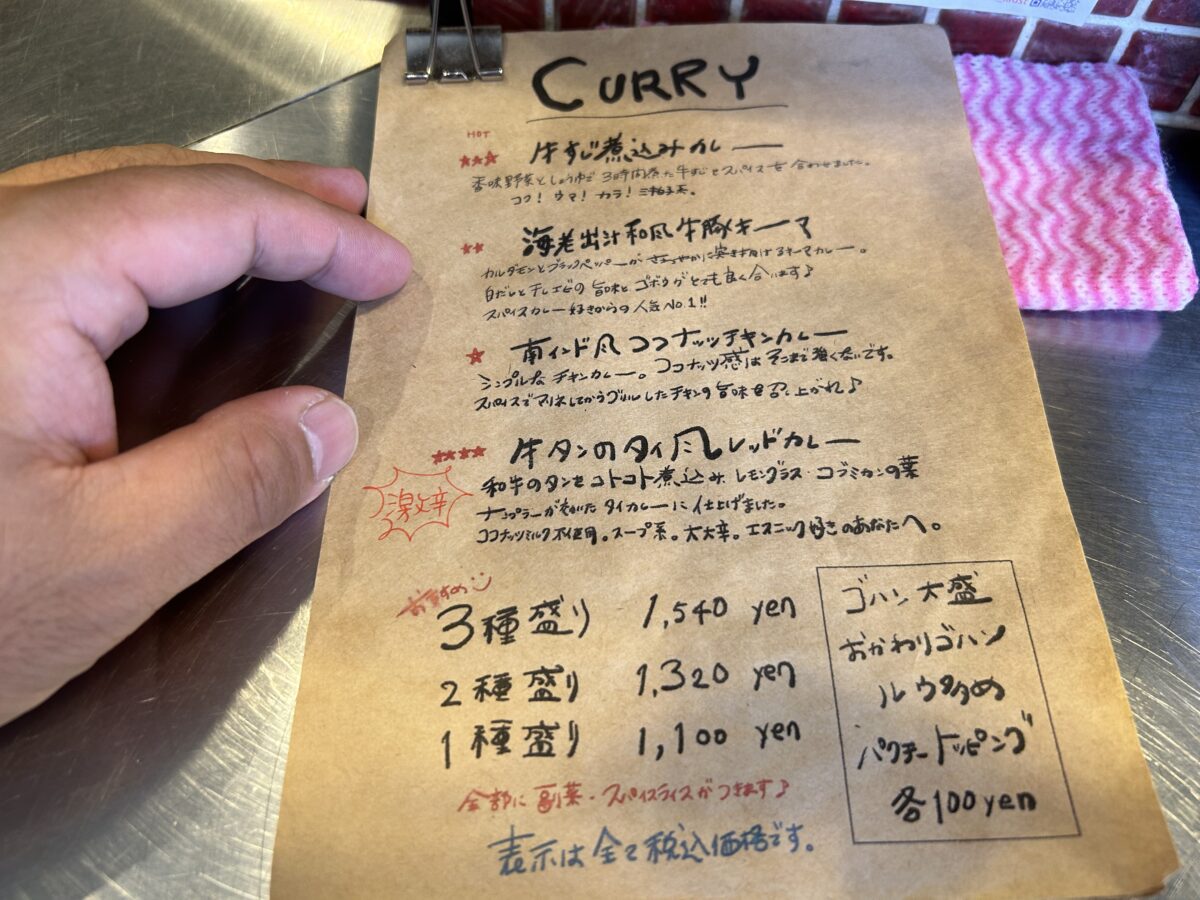 CURRY
HOT
★★★ 牛すじ煮込みカレー
香味野菜としょうゆで3時間煮た牛すじとスパイスを合わせました。
コク！ウマ！カラ！三拍子系。
★★ 海老出汁和風牛豚キーマ
カルダモンとブラックペッパーがさわやかに突き抜けるキーマカレー。
白だしと干しエビの旨味とゴボウがとても良く合います♪
スパイスカレー好きからの人気No.1!!
★ 南インド風ココナッツチキンカレー
シンプルなチキンカレー。ココナッツ感はそこまで強くないです。
スパイスでマリネしてからグリルしたチキンの旨味を召し上がれ♪
★★★★ 牛タンのタイ風レッドカレー
激辛
和牛のタンをコトコト煮込み、レモングラス・コブミカンの葉
ナンプラーが効いたタイカレーに仕上げました。
ココナッツミルク不使用。スープ系。大大辛。エスニック好きのあなたへ。
おすすめ
3種盛り 1,540 yen
2種盛り 1,320 yen
1種盛り 1,100 yen
全部に副菜・スパイスライスがつきます♪
表示は全て税込価格です。
ゴハン大盛
おかわりゴハン
ルウ多め
パクチートッピング
各100yen